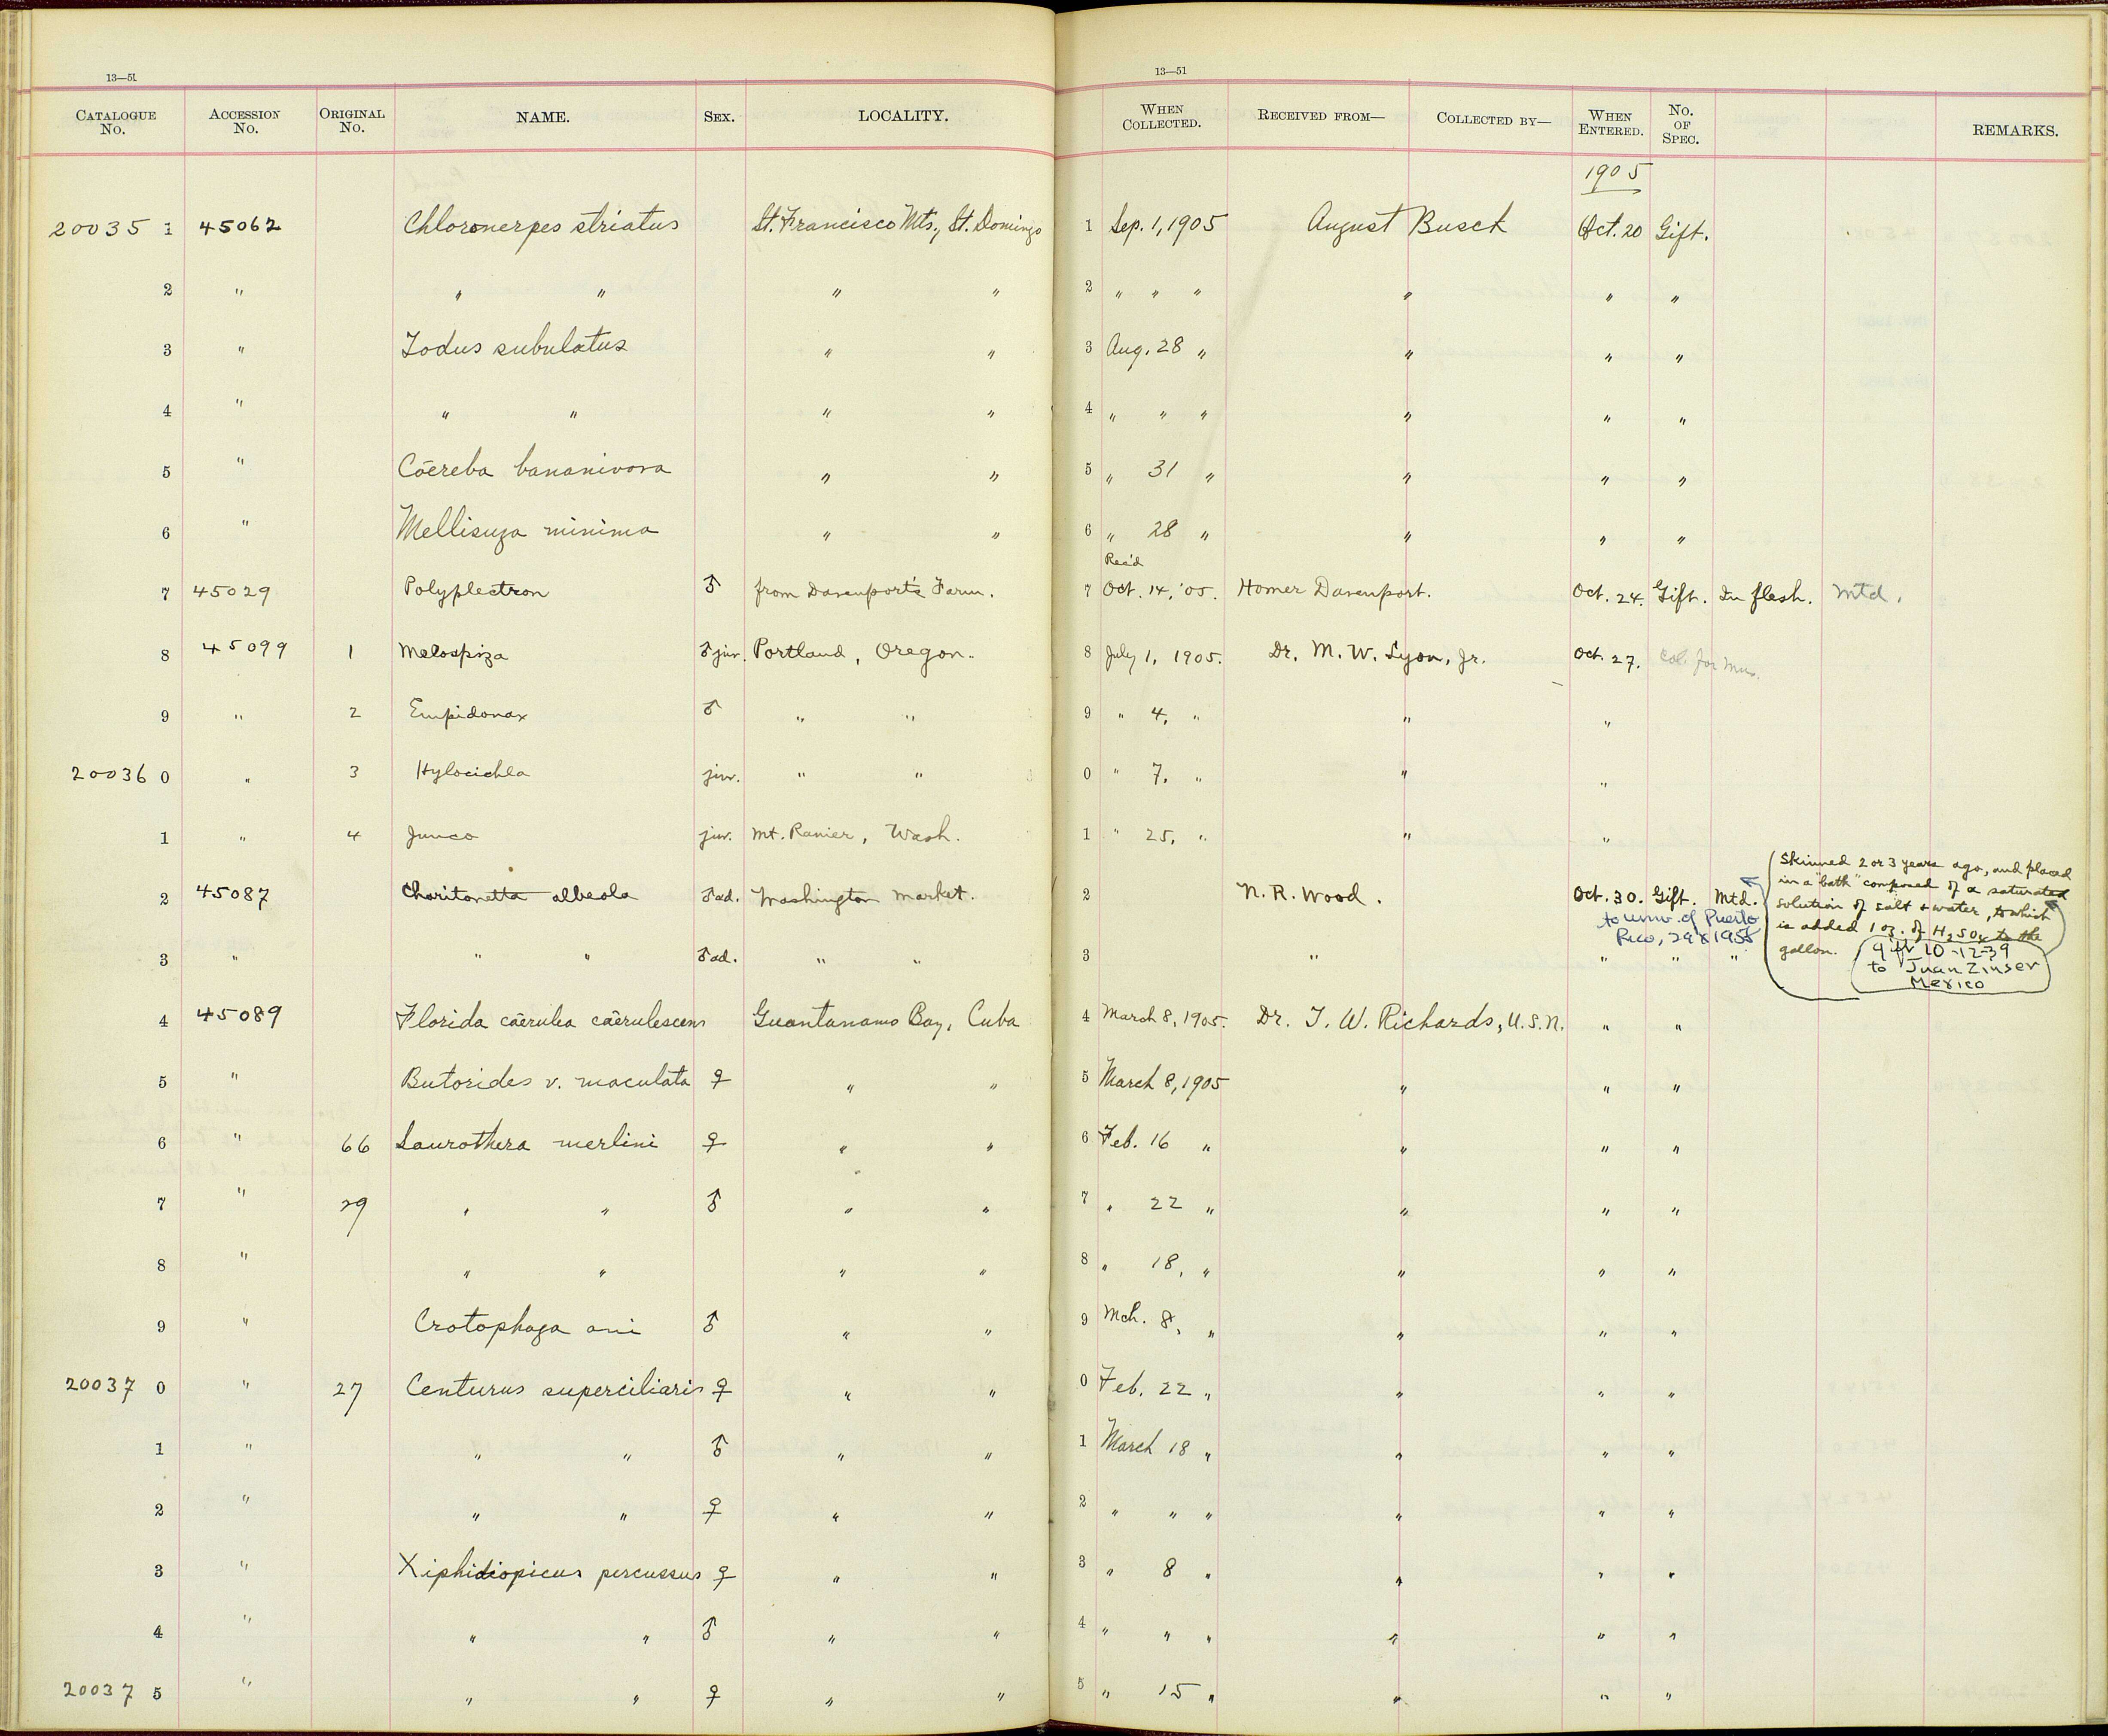 13—51
13—51
CATALOGUE No. ACCESSION No. ORIGINAL No. NAME. SEX. LOCALITY. WHEN COLLECTED. RECEIVED FROM— COLLECTED BY— WHEN ENTERED. No. OF SPEC. REMARKS.
1905
20035 1 45062 Chloronerpes striatus St. Francisco Mts., St. Domingo 1 Sep. 1, 1905 August Busck Oct. 20 Gift.
2 " " " " " 2 " " " " " "
3 " Todus subulatus " " 3 Aug. 28 " " " "
4 " " " " " 4 " " " " " "
5 " Cōereba bananivora " " 5 " 31 " " " "
6 " Mellisuga minima " " 6 " 28 " " " "
Rec'd
7 45029 Polyplectron ♂ from Davenport's Farm. 7 Oct. 14, '05. Homer Davenport. Oct. 24. Gift. In flesh. Mtd.
8 45099 1 Melospiza ♂ juv. Portland, Oregon. 8 July 1, 1905. Dr. M. W. Lyon, Jr. Oct. 27. Col. for Mus.
9 " 2 Empidonax ♂ " " 9 " 4, " " "
20036 0 " 3 Hylocichla juv. " " 0 " 7, " " "
1 " 4 Junco juv. Mt. Ranier, Wash. 1 " 25, " " "
2 45087 Charitonetta albeola ♂ad. Washington Market. 2 N. R. Wood. Oct. 30. Gift. Mtd.
to Univ. of Puerto
Rico, 29 X 1955
Skinned 2 or 3 years ago, and placed
in a "bath" composed of a saturated
solution of salt & water, to which
is added 1 oz. of H2SO4 to the
gallon.
gift 10-12-39
to Juan Zinser
Mexico
3 " " " ♂ad. " " 3 " " " "
4 45089 Florida cāerulea cāerulescens Guantanamo Bay, Cuba 4 March 8, 1905. Dr. T. W. Richards, U.S.N. " "
5 " Butorides v. maculata ♀ " " 5 March 8, 1905 " " "
6 " 66 Saurothera merlini ♀ " " 6 Feb. 16 " " " "
7 " 29 " " ♂ " " 7 " 22 " " " "
8 " " " " " 8 " 18, " " " "
9 " Crotophaga ani ♂ " " 9 Mch. 8, " " " "
20037 0 " 27 Centurus superciliaris ♀ " " 0 Feb. 22 " " " "
1 " " " ♂ " " 1 March 18 " " " "
2 " " " ♀ " " 2 " " " " " "
3 " Xiphidiopicus percussus ♀ " " 3 " 8 " " " "
4 " " " ♂ " " 4 " " " " " "
20037 5 " " " ♀ " " 5 " 15 " " " "